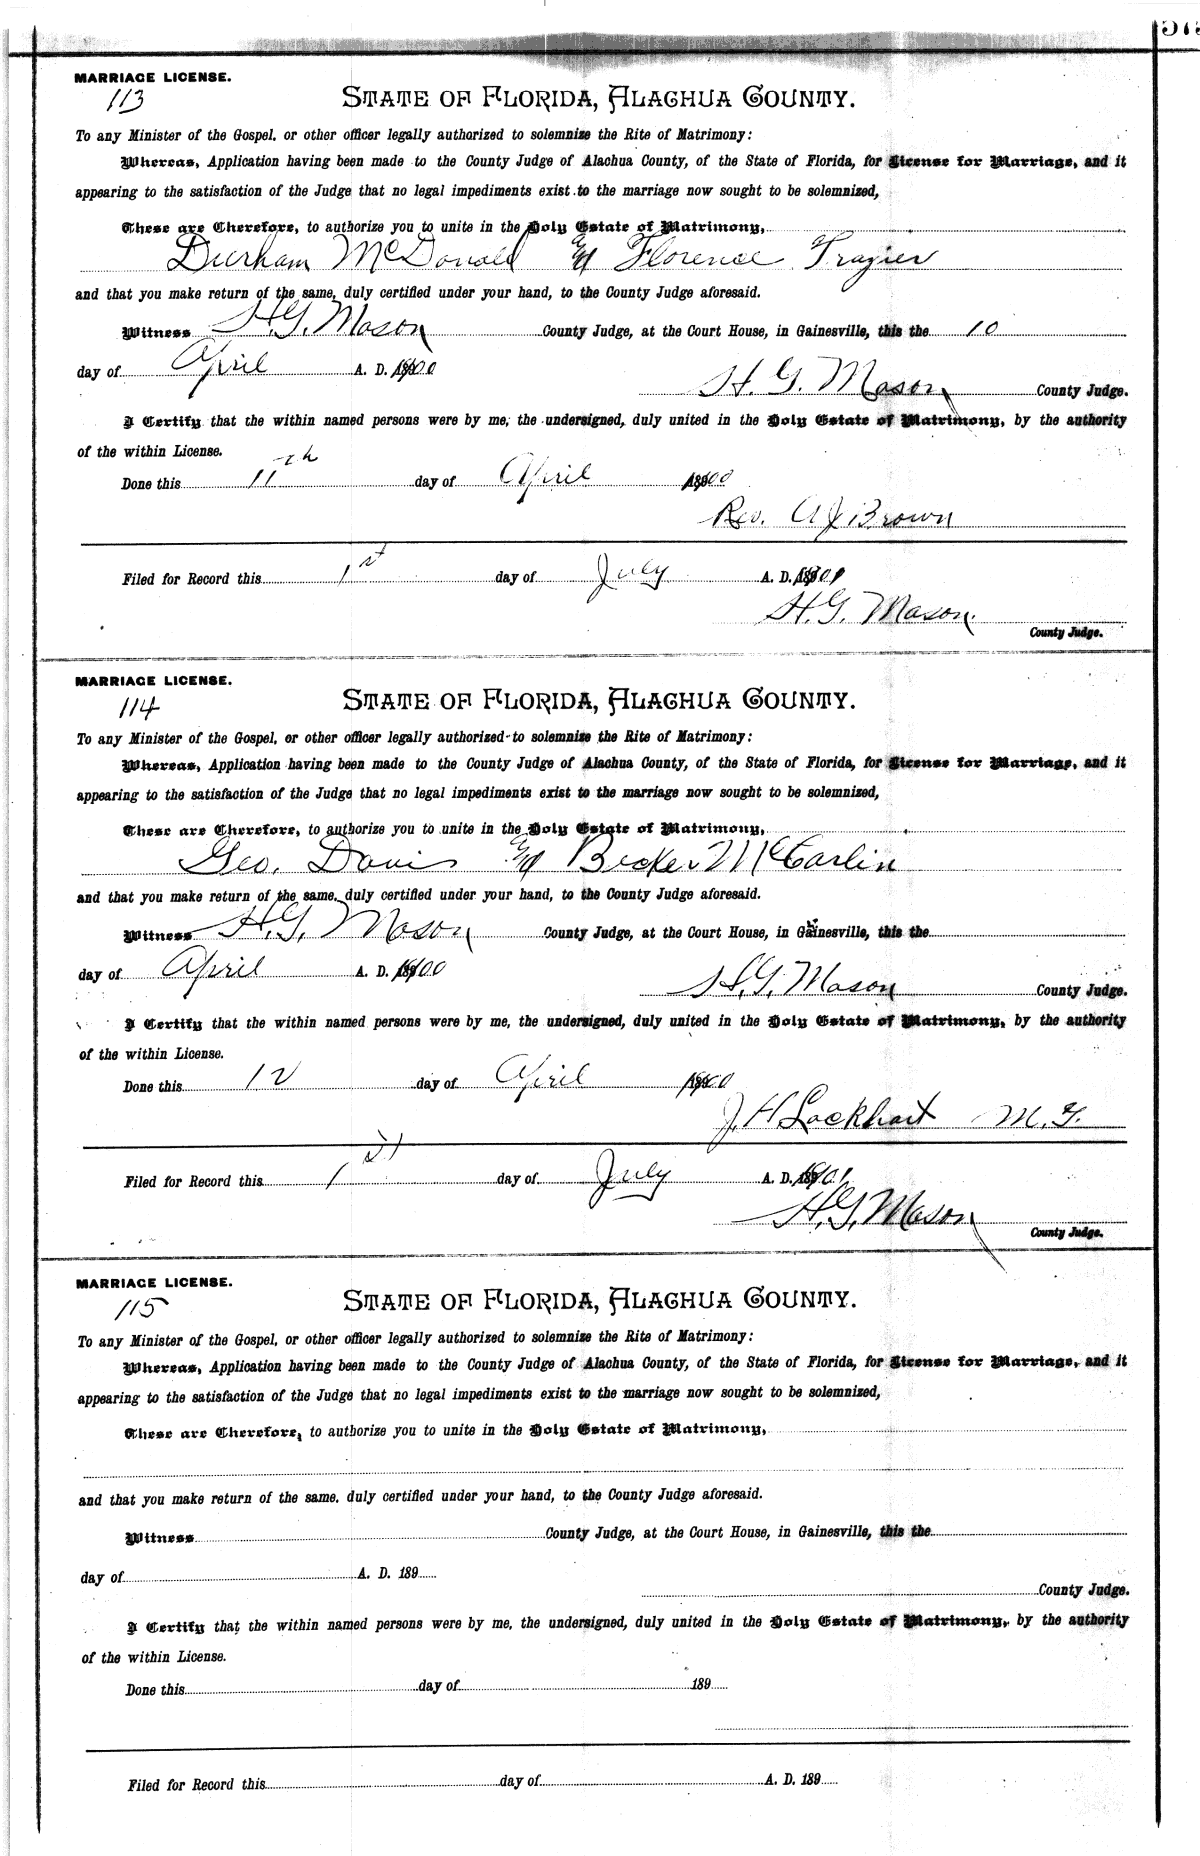 MARRIAGE LICENSE.
113
STATE OF FLORIDA, ALACHUA COUNTY.
To any Minister of the Gospel, or other officer legally authorized to solemnize the Rite of Matrimony:
Whereas, Application having been made to the County Judge of Alachua County, of the State of Florida, for License for Marriage, and it
appearing to the satisfaction of the Judge that no legal impediments exist to the marriage now sought to be solemnized,
These are Therefore, to authorize you to unite in the Holy Estate of Matrimony,
Durham McDonald & Florence Frazier
and that you make return of the same, duly certified under your hand, to the County Judge aforesaid.
Witness H.G. Mason County Judge, at the Court House, in Gainesville, this the 10
day of April A. D. 1900
H. G. Mason County Judge.
I Certify that the within named persons were by me, the undersigned, duly united in the Holy Estate of Matrimony, by the authority
of the within License.
Done this 11th day of April 1900
Rev. A J Brown
Filed for Record this 1st day of July A. D. 1901
H. G. Mason
County Judge.
MARRIAGE LICENSE.
114
STATE OF FLORIDA, ALACHUA COUNTY.
To any Minister of the Gospel, or other officer legally authorized to solemnize the Rite of Matrimony:
Whereas, Application having been made to the County Judge of Alachua County, of the State of Florida, for License for Marriage, and it
appearing to the satisfaction of the Judge that no legal impediments exist to the marriage now sought to be solemnized,
These are Therefore, to authorize you to unite in the Holy Estate of Matrimony,
Geo. Davis & Becker McCarlin
and that you make return of the same, duly certified under your hand, to the County Judge aforesaid.
Witness H.G. Mason County Judge, at the Court House, in Gainesville, this the
day of April A. D. 1900
H. G. Mason County Judge.
I Certify that the within named persons were by me, the undersigned, duly united in the Holy Estate of Matrimony, by the authority
of the within License.
Done this 12 day of April 1900
J. H Lockhart M. G.
Filed for Record this 1st day of July A. D. 1901
H. G. Mason
County Judge.
MARRIAGE LICENSE.
115
STATE OF FLORIDA, ALACHUA COUNTY.
To any Minister of the Gospel, or other officer legally authorized to solemnize the Rite of Matrimony:
Whereas, Application having been made to the County Judge of Alachua County, of the State of Florida, for License for Marriage, and it
appearing to the satisfaction of the Judge that no legal impediments exist to the marriage now sought to be solemnized,
These are Therefore, to authorize you to unite in the Holy Estate of Matrimony,
and that you make return of the same, duly certified under your hand, to the County Judge aforesaid.
Witness County Judge, at the Court House, in Gainesville, this the
day of A. D. 189
County Judge.
I Certify that the within named persons were by me, the undersigned, duly united in the Holy Estate of Matrimony, by the authority
of the within License.
Done this day of 189
Filed for Record this day of A. D. 189